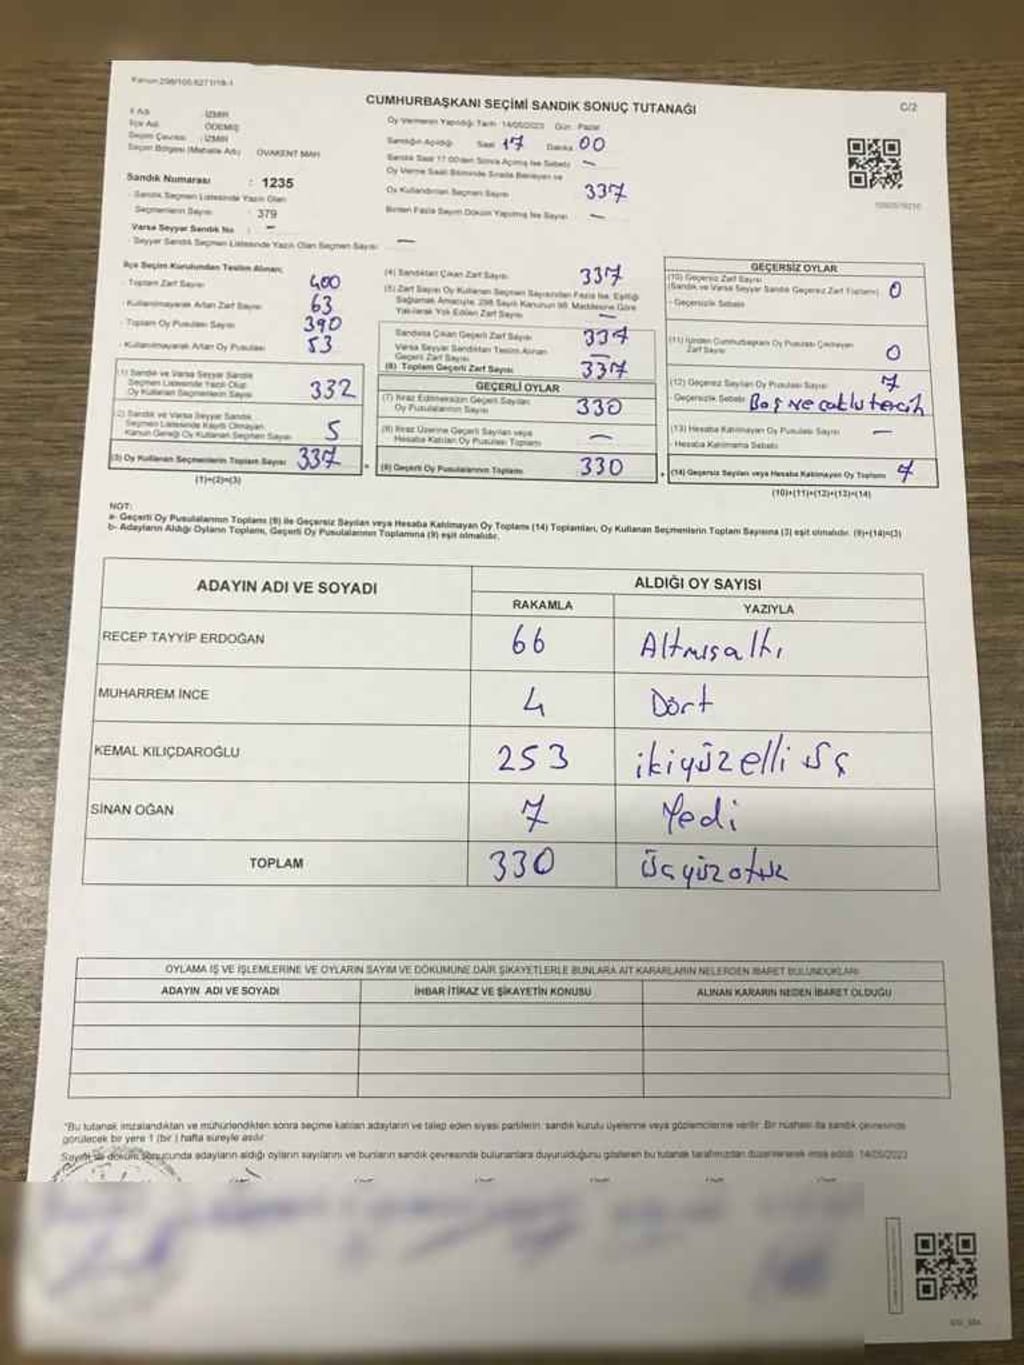 Kanun:298/105-6271/18-1
CUMHURBAŞKANI SEÇİMİ SANDIK SONUÇ TUTANAĞI
C/2
İl Adı : İZMİR
İlçe Adı : ÖDEMİŞ
Seçim Çevresi : İZMİR
Seçim Bölgesi (Mahalle Adı) : OVAKENT MAH
Sandık Numarası : 1235
Sandık Seçmen Listesinde Yazılı Olan
Seçmenlerin Sayısı : 379
Varsa Seyyar Sandık No : -
Seyyar Sandık Seçmen Listesinde Yazılı Olan Seçmen Sayısı : -
Oy Vermenin Yapıldığı Tarih : 14/05/2023 Gün : Pazar
Sandığın Açıldığı Saat 17 Dakika 00
Sandık Saat 17.00'den Sonra Açılmış İse Sebebi -
Oy Verme Saati Bitiminde Sırada Bekleyen ve
Oy Kullandırılan Seçmen Sayısı 337
Birden Fazla Sayım Döküm Yapılmış İse Sayısı -
İlçe Seçim Kurulundan Teslim Alınan;
- Toplam Zarf Sayısı 400
- Kullanılmayarak Artan Zarf Sayısı 63
- Toplam Oy Pusulası Sayısı 390
- Kullanılmayarak Artan Oy Pusulası 53
(1) Sandık ve Varsa Seyyar Sandık
Seçmen Listesinde Yazılı Olup
Oy Kullanan Seçmenlerin Sayısı 332
(2) Sandık ve Varsa Seyyar Sandık
Seçmen Listesinde Kayıtlı Olmayan
Kanun Gereği Oy Kullanan Seçmenlerin Sayısı 5
(3) Oy Kullanan Seçmenlerin Toplam Sayısı 337
(1)+(2)=(3)
(4) Sandıktan Çıkan Zarf Sayısı 337
(5) Zarf Sayısı Oy Kullanan Seçmen Sayısından Fazla İse, Eşitliği
Sağlamak Amacıyla, 298 Sayılı Kanunun 98. Maddesine Göre
Yakılarak Yok Edilen Zarf Sayısı -
Sandıkta Çıkan Geçerli Zarf Sayısı 337
Varsa Seyyar Sandıktan Teslim Alınan
Geçerli Zarf Sayısı -
(6) Toplam Geçerli Zarf Sayısı 337
GEÇERLİ OYLAR
(7) İtiraz Edilmeksizin Geçerli Sayılan
Oy Pusulalarının Sayısı 330
(8) İtiraz Üzerine Geçerli Sayılan veya
Hesaba Katılan Oy Pusulası Toplamı -
(9) Geçerli Oy Pusulalarının Toplamı 330
GEÇERSİZ OYLAR
(10) Geçersiz Zarf Sayısı
(Sandık ve Varsa Seyyar Sandık Geçersiz Zarf Toplamı) 0
- Geçersizlik Sebebi
(11) İçinden Cumhurbaşkanı Oy Pusulası Çıkmayan
Zarf Sayısı 0
(12) Geçersiz Sayılan Oy Pusulası Sayısı 7
- Geçersizlik Sebebi Boş ve çoklu tercih
(13) Hesaba Katılmayan Oy Pusulası Sayısı -
- Hesaba Katılmama Sebebi
(14) Geçersiz Sayılan veya Hesaba Katılmayan Oy Toplamı 7
(10)+(11)+(12)+(13)=(14)
NOT:
a- Geçerli Oy Pusulalarının Toplamı (9) ile Geçersiz Sayılan veya Hesaba Katılmayan Oy Toplamı (14) Toplamları, Oy Kullanan Seçmenlerin Toplam Sayısına (3) eşit olmalıdır. (9)+(14)=(3)
b- Adayların Aldığı Oyların Toplamı, Geçerli Oy Pusulalarının Toplamına (9) eşit olmalıdır.
ADAYIN ADI VE SOYADI
ALDIĞI OY SAYISI
RAKAMLA YAZIYLA
RECEP TAYYİP ERDOĞAN 66 Altmışaltı
MUHARREM İNCE 4 Dört
KEMAL KILIÇDAROĞLU 253 ikiyüzelli üç
SİNAN OĞAN 7 Yedi
TOPLAM 330 Üçyüzotuz
OYLAMA İŞ VE İŞLEMLERİNE VE OYLARIN SAYIM VE DÖKÜMÜNE DAİR ŞİKAYETLERLE BUNLARA AİT KARARLARIN NELERDEN İBARET BULUNDUKLARI
ADAYIN ADI VE SOYADI İHBAR İTİRAZ VE ŞİKAYETİN KONUSU ALINAN KARARIN NEDEN İBARET OLDUĞU
"Bu tutanak imzalandıktan ve mühürlendikten sonra seçime katılan adayların ve talep eden siyasi partilerin; sandık kurulu üyelerine veya gözlemcilerine verilir. Bir nüshası da sandık çevresinde
görülecek bir yere 1 (bir ) hafta süreyle asılır.
Sayım ve döküm sonucunda adayların aldığı oyların sayılarını ve bunların sandık çevresinde bulunanlara duyurulduğunu gösteren bu tutanak tarafımızdan düzenlenerek imza edildi. 14/05/2023